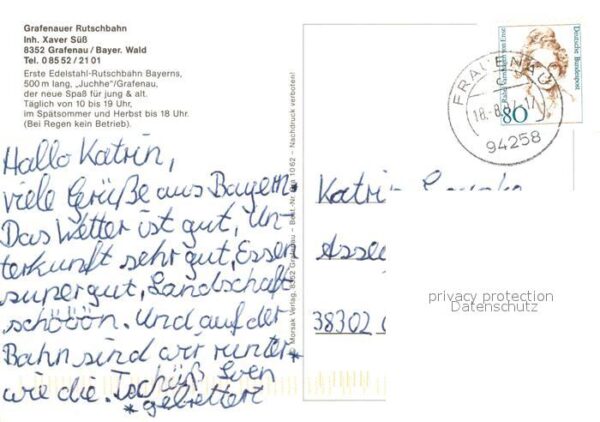 Grafenauer Rutschbahn
Inh. Xaver Süß
8352 Grafenau / Bayer. Wald
Tel. 0 85 52 / 21 01
Erste Edelstahl-Rutschbahn Bayerns,
500 m lang, „Juchhe“/Grafenau,
der neue Spaß für jung & alt.
Täglich von 10 bis 19 Uhr,
im Spätsommer und Herbst bis 18 Uhr.
(Bei Regen kein Betrieb).
Hallo Katrin,
viele Grüße aus Bayern.
Das Wetter ist gut, Un-
terkunft sehr gut, Essen
supergut, Landschaft
schööön. Und auf der
Bahn sind wir runter*
wie die. Tschüß Sven
*gebrettert
© Morsak Verlag, 8352 Grafenau – Best.-Nr. 10 62 – Nachdruck verboten!
Deutsche Bundespost
80
FRAUENAU
18.-8.
94258
Katrin
38302
privacy protection
Datenschutz